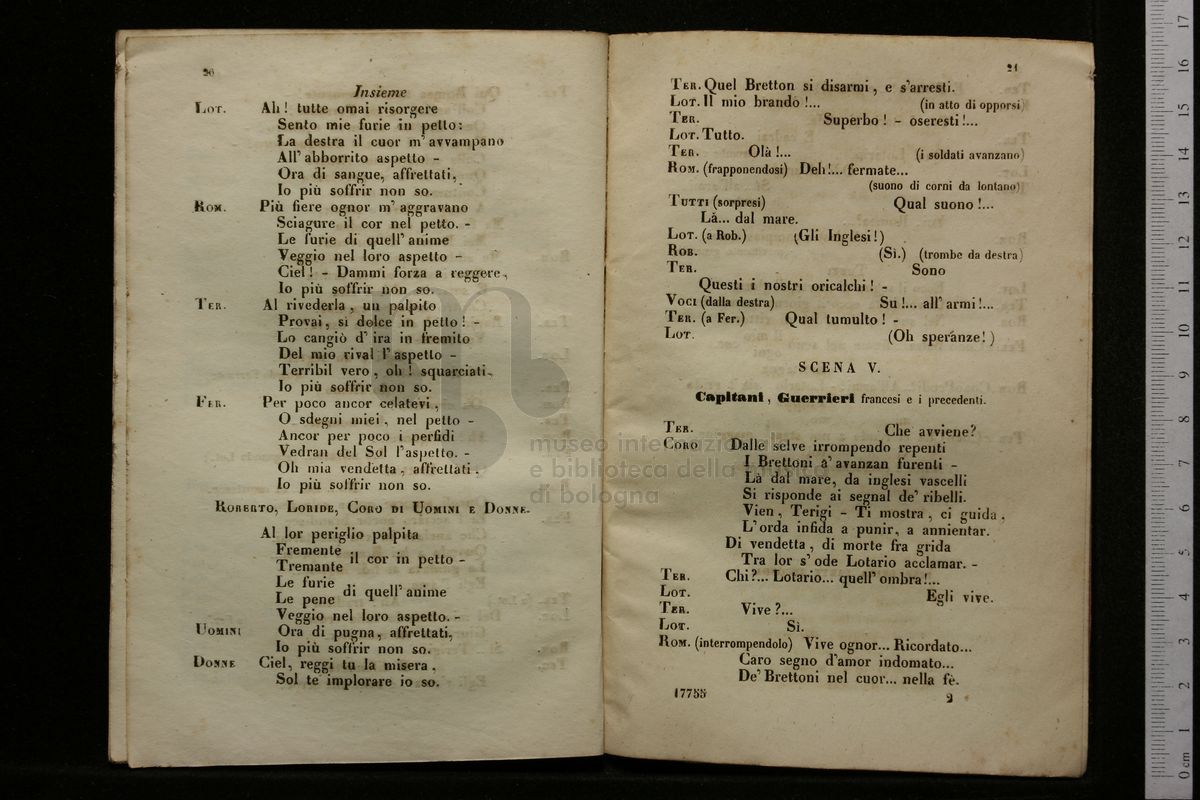 20
Insieme
LOT. Ah! tutte omai risorgere
Sento mie furie in petto:
La destra il cuor m'avvampano
All'abborrito aspetto -
Ora di sangue, affrettati,
Io più soffrir non so.
ROM. Più fiere ognor m'aggravano
Sciagure il cor nel petto. -
Le furie di quell'anime
Veggio nel loro aspetto -
Ciel! - Dammi forza a reggere,
Io più soffrir non so.
TER. Al rivederla, un palpito
Provai, sì dolce in petto! -
Lo cangiò d'ira in fremito
Del mio rival l'aspetto -
Terribil vero, oh! squarciati,
Io più soffrir non so.
FER. Per poco ancor celatevi,
O sdegni miei, nel petto -
Ancor per poco i perfidi
Vedran del Sol l'aspetto. -
Oh mia vendetta, affrettati.
Io più soffrir non so.
ROBERTO, LORIDE, CORO DI UOMINI E DONNE.
Al lor periglio palpita
Fremente
Tremante il cor in petto -
Le furie
Le pene di quell'anime
Veggio nel loro aspetto. -
UOMINI Ora di pugna, affrettati,
Io più soffrir non so.
DONNE Ciel, reggi tu la misera,
Sol te implorare io so.
21
TER. Quel Bretton si disarmi, e s'arresti.
LOT. Il mio brando!... (in atto di opporsi)
TER. Superbo! - oseresti!...
LOT. Tutto.
TER. Olà!... (i soldati avanzano)
ROM. (frapponendosi) Deh!... fermate...
(suono di corni da lontano)
TUTTI (sorpresi) Qual suono!...
Là... dal mare.
LOT. (a Rob.) (Gli Inglesi!)
ROB. (Sì.) (trombe da destra)
TER. Sono
Questi i nostri oricalchi! -
VOCI (dalla destra) Su!... all'armi!...
TER. (a Fer.) Qual tumulto! -
LOT. (Oh speranze!)
SCENA V.
Capitani, Guerrieri francesi e i precedenti.
TER. Che avviene?
CORO Dalle selve irrompendo repenti
I Brettoni s'avanzan furenti -
Là dal mare, da inglesi vascelli
Si risponde ai segnal de' ribelli.
Vien, Terigi - Ti mostra, ci guida,
L'orda infida a punir, a annientar.
Di vendetta, di morte fra grida
Tra lor s'ode Lotario acclamar. -
TER. Chi?... Lotario... quell'ombra!...
LOT. Egli vive.
TER. Vive?...
LOT. Sì.
ROM. (interrompendolo) Vive ognor... Ricordato...
Caro segno d'amor indomato...
De' Brettoni nel cuor... nella fè.
17755 2
museo internazionale
e biblioteca della musica
di bologna
17
16
15
14
13
12
11
10
9
8
7
6
5
4
3
2
1
0 cm